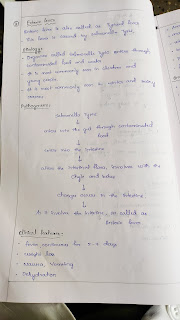 Enteric fever
Enteric fever is also called as Typhoid fever
This fever is caused by salmonella typhi.
Etiology:-
- Organism called salmonella typhi enters through
contaminated food and water
- It is most commonly seen in children and
young adults.
- It is most commonly seen in winter and rainy
Pathogenesis:-
salmonella typhi
↓
enters into the gut through contaminated
food
↓
enters into the
↓
the intestinal
↓
changes occurs in the intestine.
↓
As it involves the intestine, so called as
Enteric fever.
Clinical features:-
- fever continuous for
- weight loss
- nausea, vomiting
- Dehydration